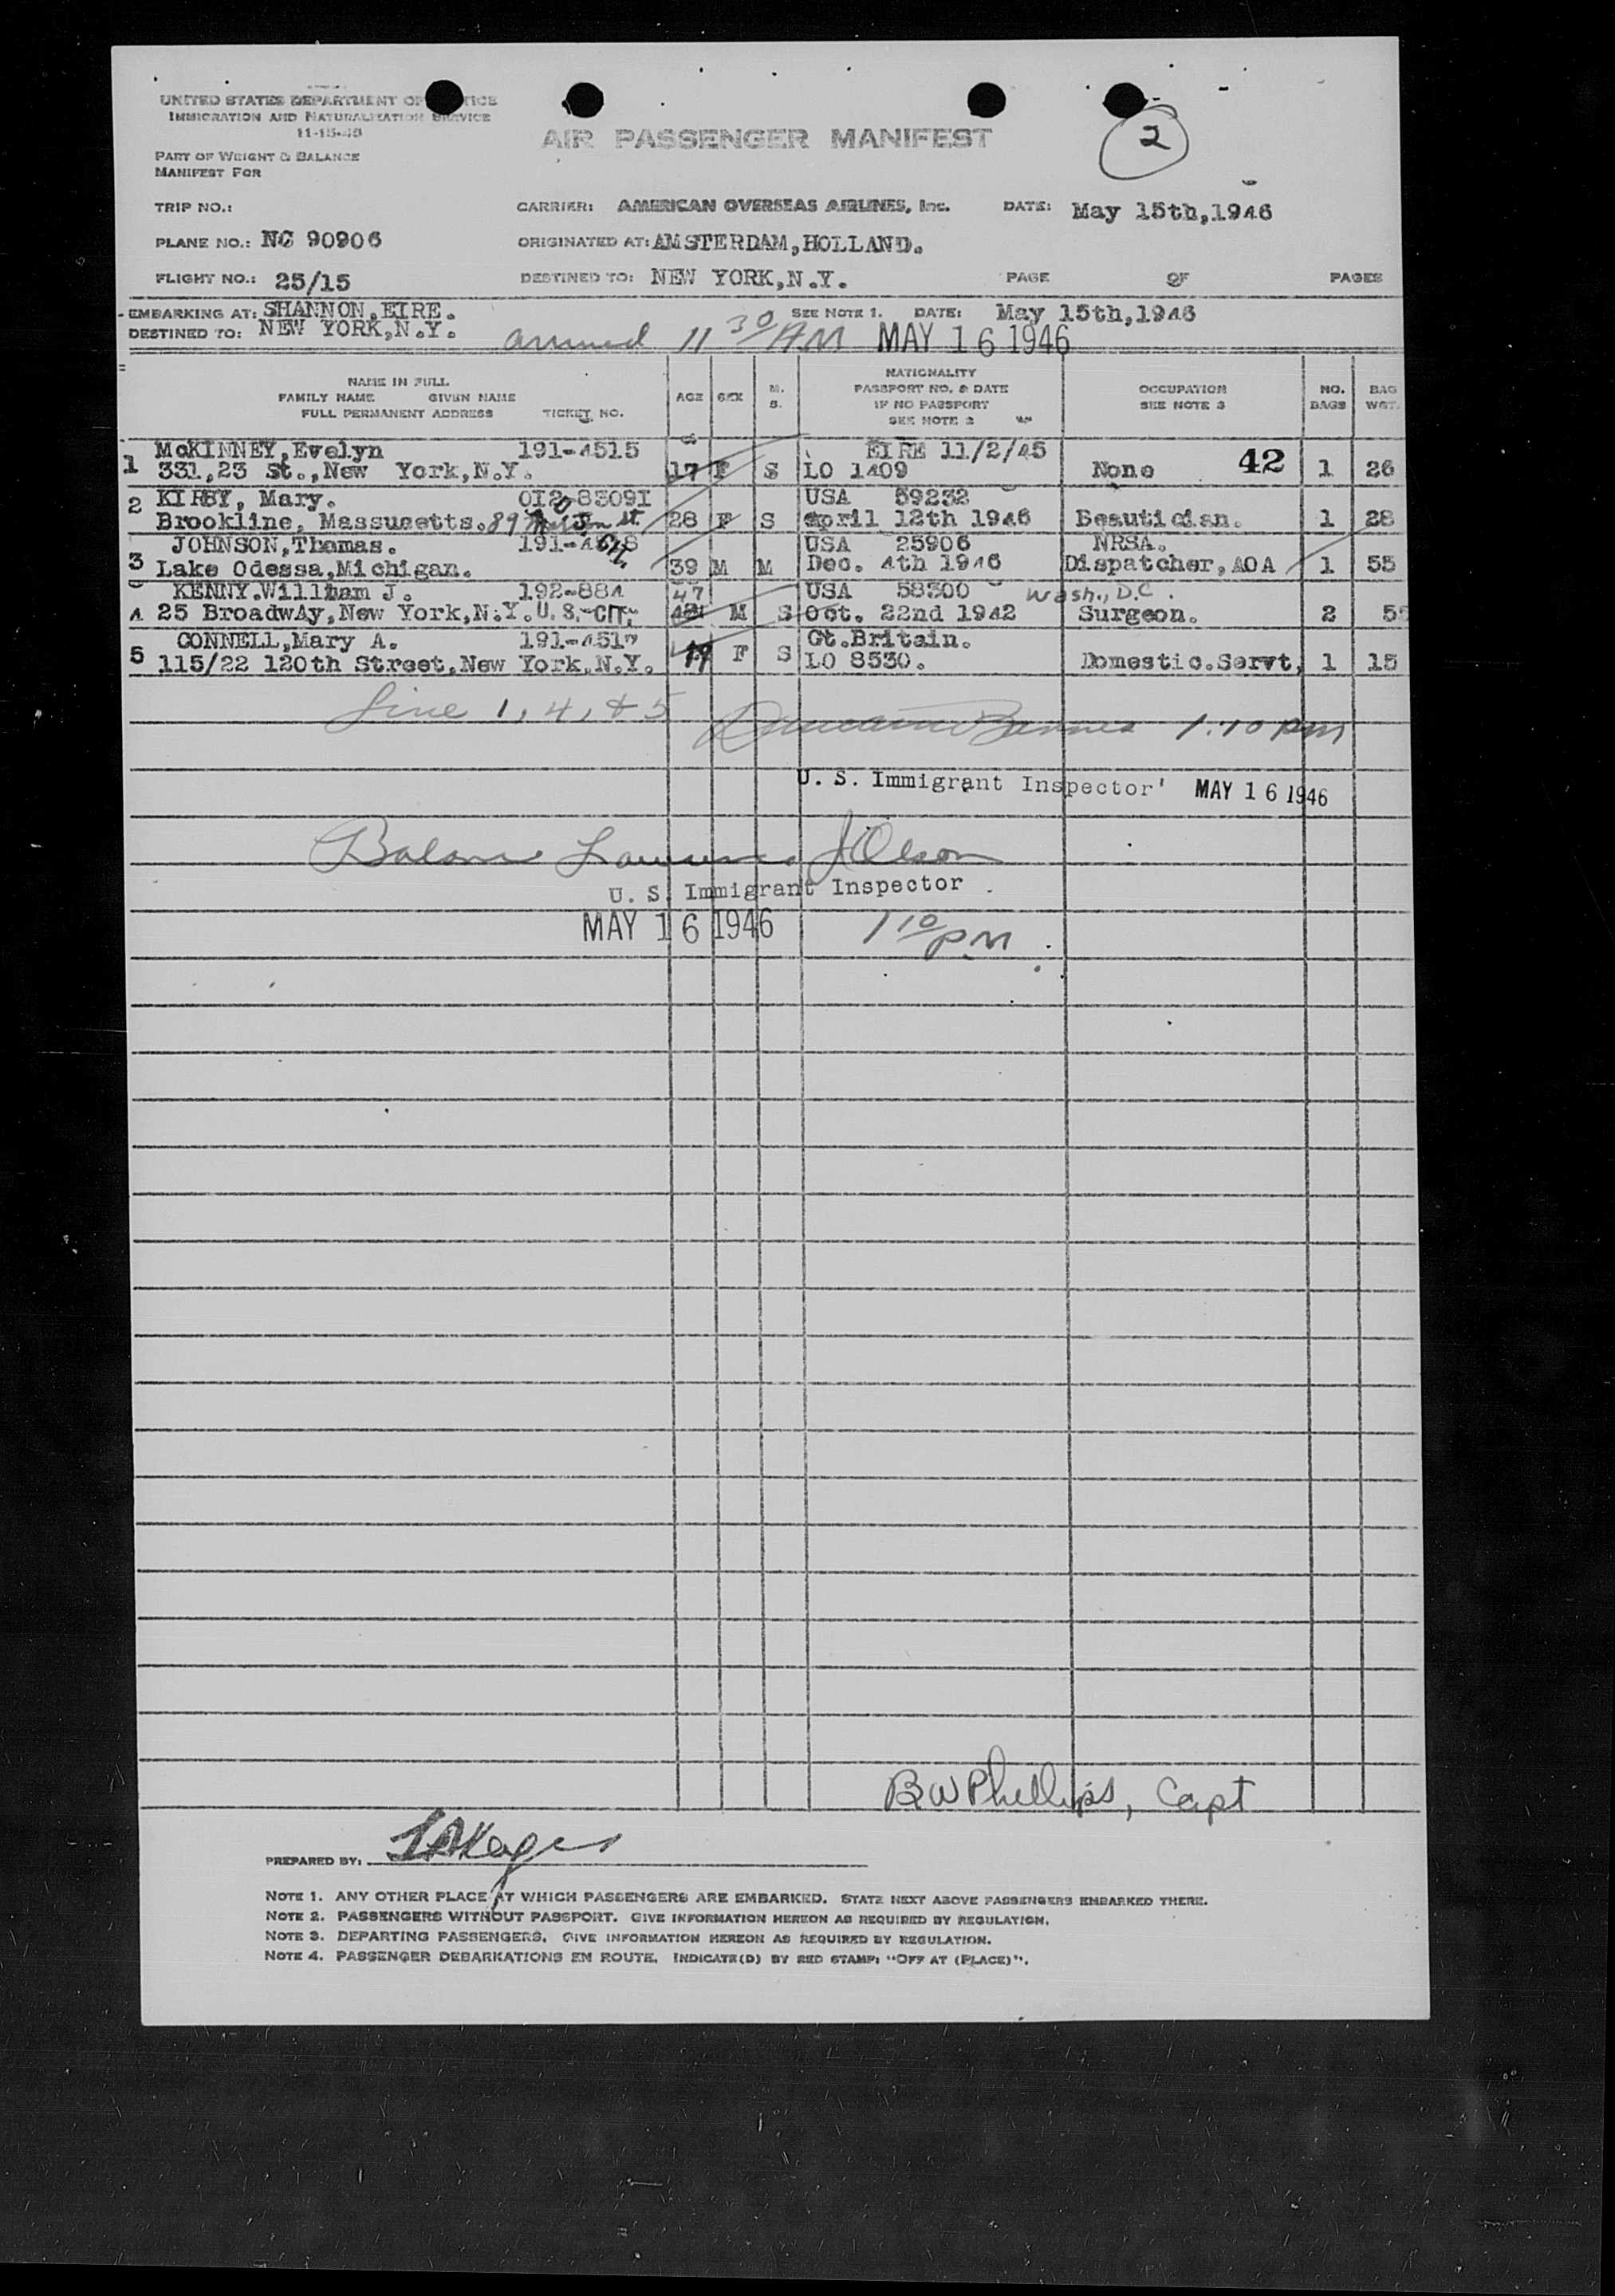 UNITED STATES DEPARTMENT OF
IMMIGRATION AND NATURALIZATION SERVICE
11-15-45
AIR PASSENGER MANIFEST
2
PART OF WEIGHT & BALANCE
MANIFEST FOR
TRIP NO.: CARRIER: AMERICAN OVERSEAS AIRLINES, Inc. DATE: May 15th,1946
PLANE NO.: NC 90906 ORIGINATED AT: AMSTERDAM,HOLLAND.
FLIGHT NO.: 25/15 DESTINED TO: NEW YORK,N.Y. PAGE OF PAGES
EMBARKING AT: SHANNON,EIRE. SEE NOTE 1. DATE: May 15th,1946
DESTINED TO: NEW YORK,N.Y. arrived 11 30/AM MAY 16 1946
NAME IN FULL
FAMILY NAME GIVEN NAME
FULL PERMANENT ADDRESS TICKET NO.
AGE SEX M. S.
NATIONALITY
PASSPORT NO. & DATE
IF NO PASSPORT
SEE NOTE 2
OCCUPATION
SEE NOTE 3
NO. BAGS
BAG WGT.
McKINNEY,Evelyn 191-4515 EIRE 11/2/45 42
1 331,23 St.,New York,N.Y. 17 F S LO 1409 None 1 26
2 KIRBY, Mary. 012-83091 USA 59232
Brookline, Massusetts. 89 St. 28 F S April 12th 1946 Beautician. 1 28
JOHNSON,Thomas. USA 25906 NRSA.
3 Lake Odessa,Michigan. 39 M M Dec. 4th 1946 Dispatcher,AOA 1 55
KENNY.William J. 192-884 47 USA 58300 Wash., D.C.
4 25 BroadwAy,New York,N.Y. U.S.-CIT. M S Oct. 22nd 1942 Surgeon. 2
CONNELL,Mary A. 191-4517 Gt.Britain.
5 115/22 120th Street,New York,N.Y. 19 F S LO 8530. Domestic.Servt, 1 15
Line 1, 4, & 5 1:10 PM
U. S. Immigrant Inspector MAY 16 1946
Balance Lawrence J Olson
U. S. Immigrant Inspector
MAY 16 1946 1 10/PM
BW Phillips, Capt
PREPARED BY:
NOTE 1. ANY OTHER PLACE AT WHICH PASSENGERS ARE EMBARKED. STATE NEXT ABOVE PASSENGERS EMBARKED THERE.
NOTE 2. PASSENGERS WITHOUT PASSPORT. GIVE INFORMATION HEREON AS REQUIRED BY REGULATION.
NOTE 3. DEPARTING PASSENGERS. GIVE INFORMATION HEREON AS REQUIRED BY REGULATION.
NOTE 4. PASSENGER DEBARKATIONS EN ROUTE. INDICATE(D) BY RED STAMP: "OFF AT (PLACE)".